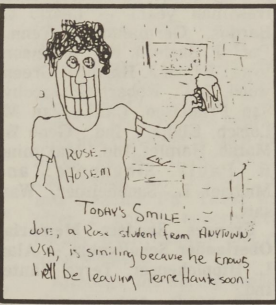 ROSE-
HUSEM
TODAY'S SMILE...
JOE, a Rose student from ANYTOWN,
USA, is smiling because he knows
he'll be leaving Terre Haute soon!